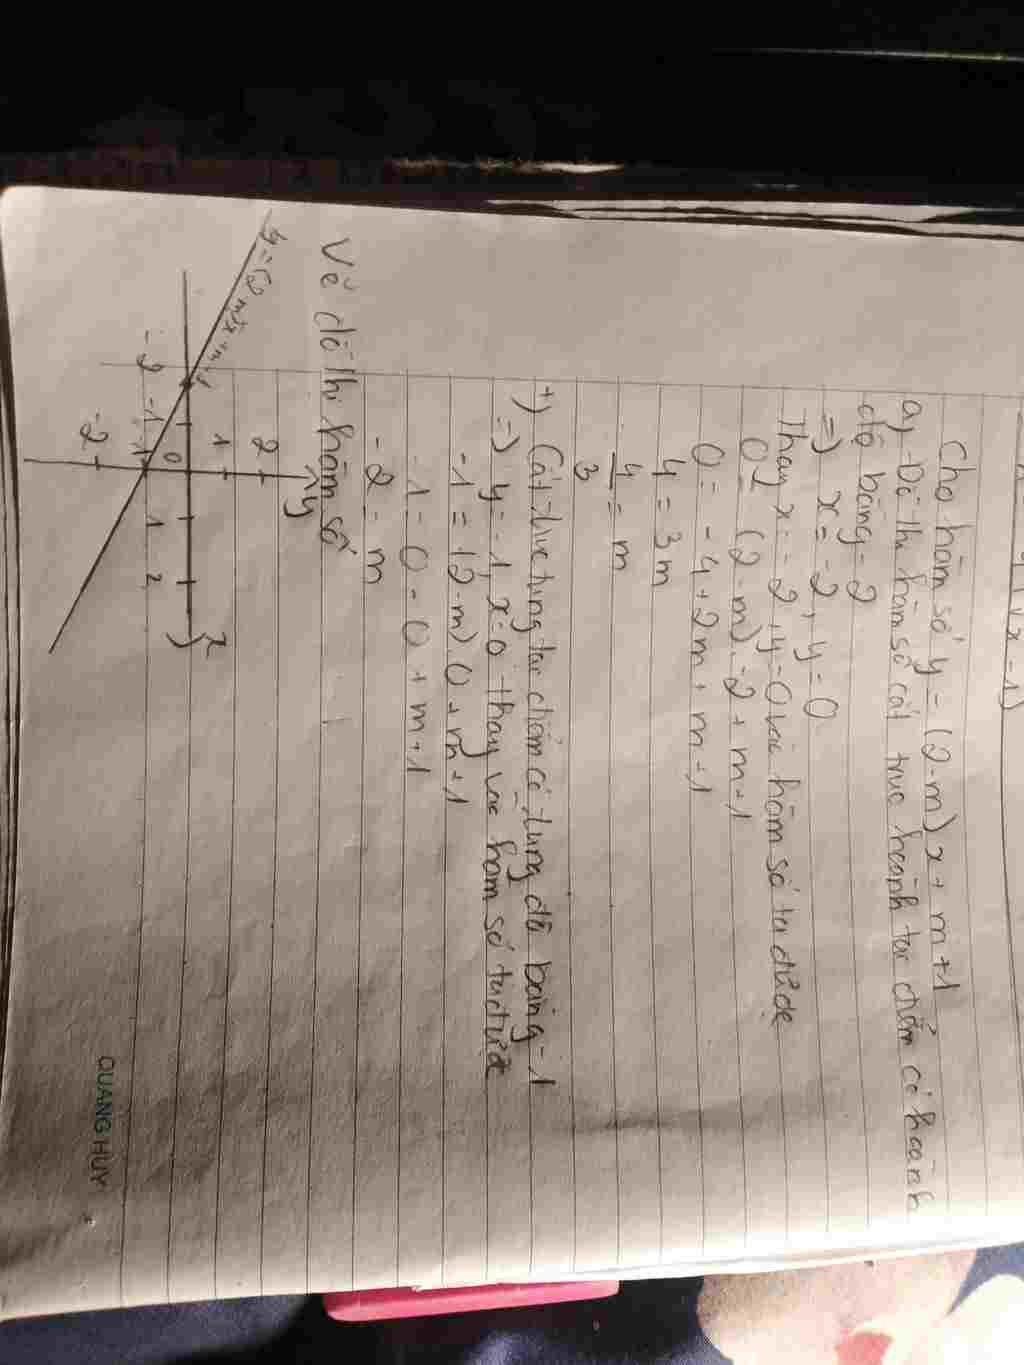 Cho hàm số y = (2-m)x + m+1
a) Đồ thị hàm số cắt trục hoành tại điểm có hoành
độ bằng -2
=> x = -2, y = 0
Thay x = -2, y = 0 vào hàm số ta được
0 = (2-m).-2 + m+1
0 = -4+2m + m+1
4 = 3m
4/3 = m
+) Cắt trục tung tại điểm có tung độ bằng -1
=> y = -1, x = 0 thay vào hàm số ta được
-1 = (2-m).0 + m+1
-1 - 0 = 0 + m+1
-2 = m
Vẽ đồ thị hàm số
y
2
1
-2 -1 0 1 2 x
-1
-2
QUANG HUY